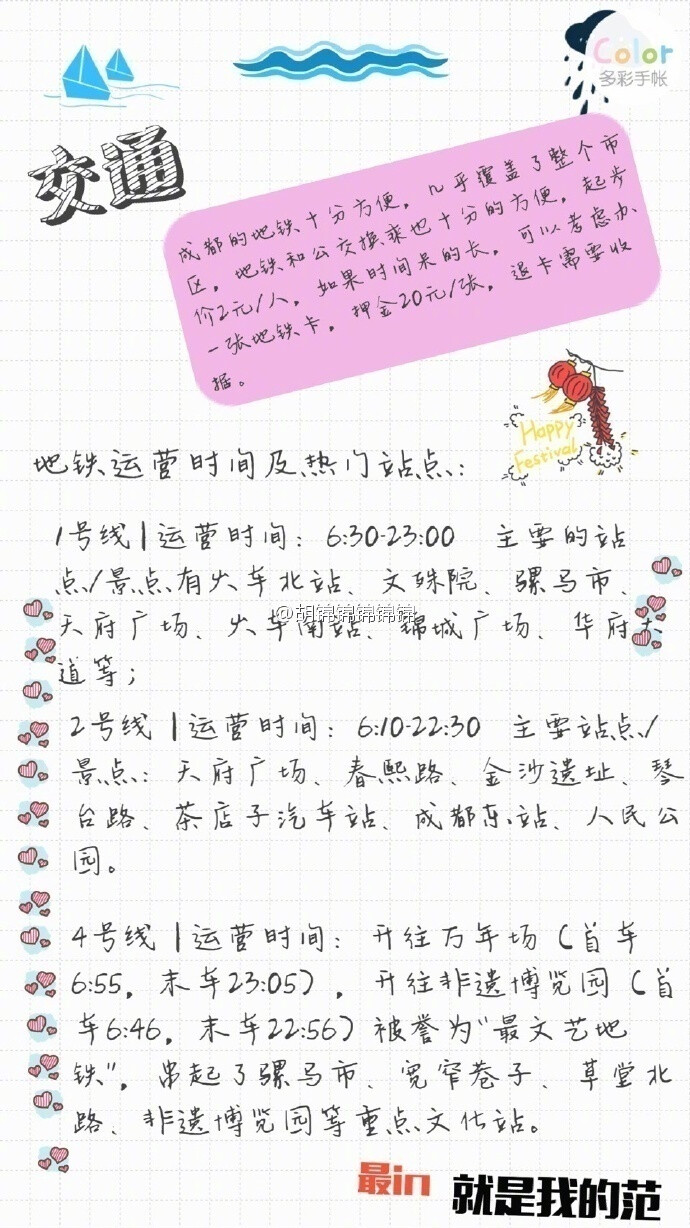 Color
多彩手帐
交通
成都的地铁十分方便，几乎覆盖了整个市
区，地铁和公交换乘也十分的方便，起步
价2元/人，如果时间呆的长，可以考虑办
一张地铁卡，押金20元/张，退卡需要收
据。
Happy
Festival
地铁运营时间及热门站点：
1号线|运营时间：6:30-23:00 主要的站
点/景点有火车北站、文殊院、骡马市、
@胡锦锦锦锦锦
天府广场、火车南站、锦城广场、华府大
道等；
2号线|运营时间：6:10-22:30 主要站点/
景点：天府广场、春熙路、金沙遗址、琴
台路、茶店子汽车站、成都东站、人民公
园。
4号线|运营时间：开往万年场（首车
6:55，末车23:05），开往非遗博览园（首
车6:46，末车22:56）被誉为“最文艺地
铁”，串起了骡马市、宽窄巷子、草堂北
路、非遗博览园等重点文化站。
最in 就是我的范